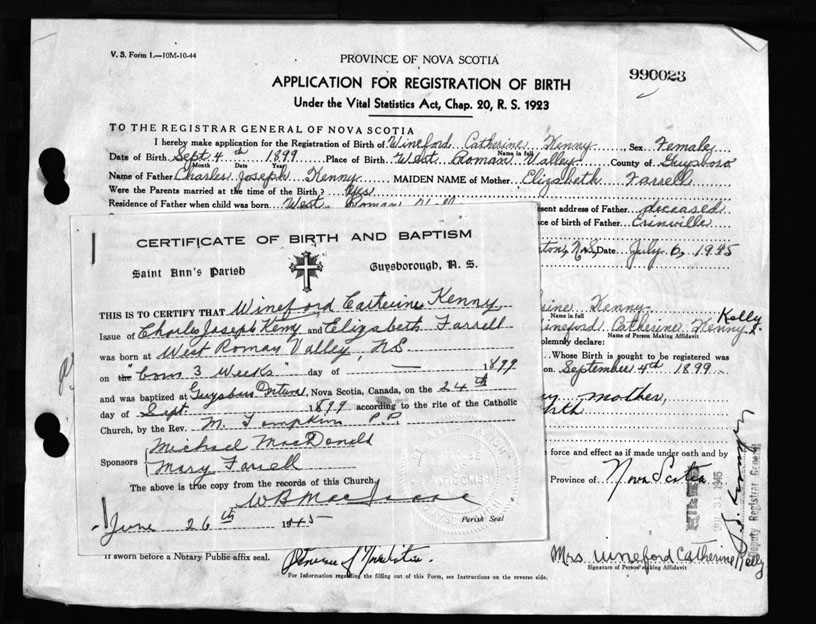 V. S. Form 1.—10M-10-44
PROVINCE OF NOVA SCOTIA
990023
APPLICATION FOR REGISTRATION OF BIRTH
Under the Vital Statistics Act, Chap. 20, R. S. 1923
TO THE REGISTRAR GENERAL OF NOVA SCOTIA
I hereby make application for the Registration of Birth of Wineford Catherine Kenny, Sex Female
Name in full
Date of Birth Sept 4th 1899 Place of Birth West Roman Valley County of Guysboro
Month Date Year
Name of Father Charles Joseph Kenny MAIDEN NAME of Mother Elizabeth Farrell
Were the Parents married at the time of the Birth? Yes
Residence of Father when child was born West Roman
esent address of Father deceased
ce of birth of Father Erinville
N.S. Date July 6, 1945
CERTIFICATE OF BIRTH AND BAPTISM
Saint Ann's Parish Guysborough, N. S.
THIS IS TO CERTIFY THAT Wineford Catherine Kenny
Issue of Charles Joseph Kenny and Elizabeth Farrell
was born at West Roman Valley, NS
on the "born 3 weeks" day of — 1899
and was baptized at Guysboro Nova Scotia, Canada, on the 24th
day of Sept 1899 according to the rite of the Catholic
Church, by the Rev. M. Tompkins P.P.
Michael MacDonald
Sponsors
Mary Farrell
The above is true copy from the records of this Church.
June 26th 1945
Parish Seal
rine Kenny
Name in full
Kelly
ineford Catherine Kenny
Name of Person Making Affidavit
olemnly declare:
Whose Birth is sought to be registered was
on September 4th 1899
my mother,
force and effect as if made under oath and by
Province of Nova Scotia
1945
Deputy Registrar General
If sworn before a Notary Public affix seal.
Mrs Wineford Catherine Kelly
Signature of Person making Affidavit
For Information regarding the filling out of this Form, see Instructions on the reverse side.